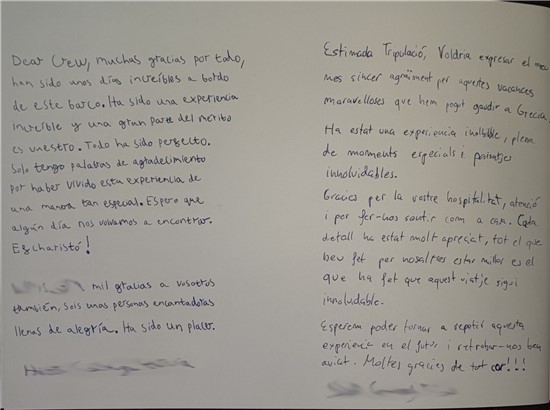 Dear Crew, muchas gracias por todo,
han sido unos días increíbles a bordo
de este barco. Ha sido una experiencia
increíble y una gran parte del mérito
es vuestro. Todo ha sido perfecto.
Solo tengo palabras de agradecimiento
por haber vivido esta experiencia de
una manera tan especial. Espero que
algún día nos volvamos a encontrar.
Efcharistó!
mil gracias a vosotros
también, sois unas personas encantadoras
llenas de alegría. Ha sido un placer.
Estimada Tripulació, Voldria expresar el meu
més sincer agraïment per aquestes vacances
maravelloses que hem pogut gaudir a Grecia.
Ha estat una experiencia inolbible, plena
de moments especials i paisatjes
innolvidables.
Gracies per la vostre hospitalitat, atenció
i por fer-nos sentir com a casa. Cada
detall ha estat molt apreciat, tot el que
heu fet per nosaltres estar millor es el
que ha fet que aquest viatje sigui
innoludable.
Esperem poder tornar a repetir aquesta
experiencia en el futur i retrobar-nos ben
aviat. Moltes gracies de tot cor!!!